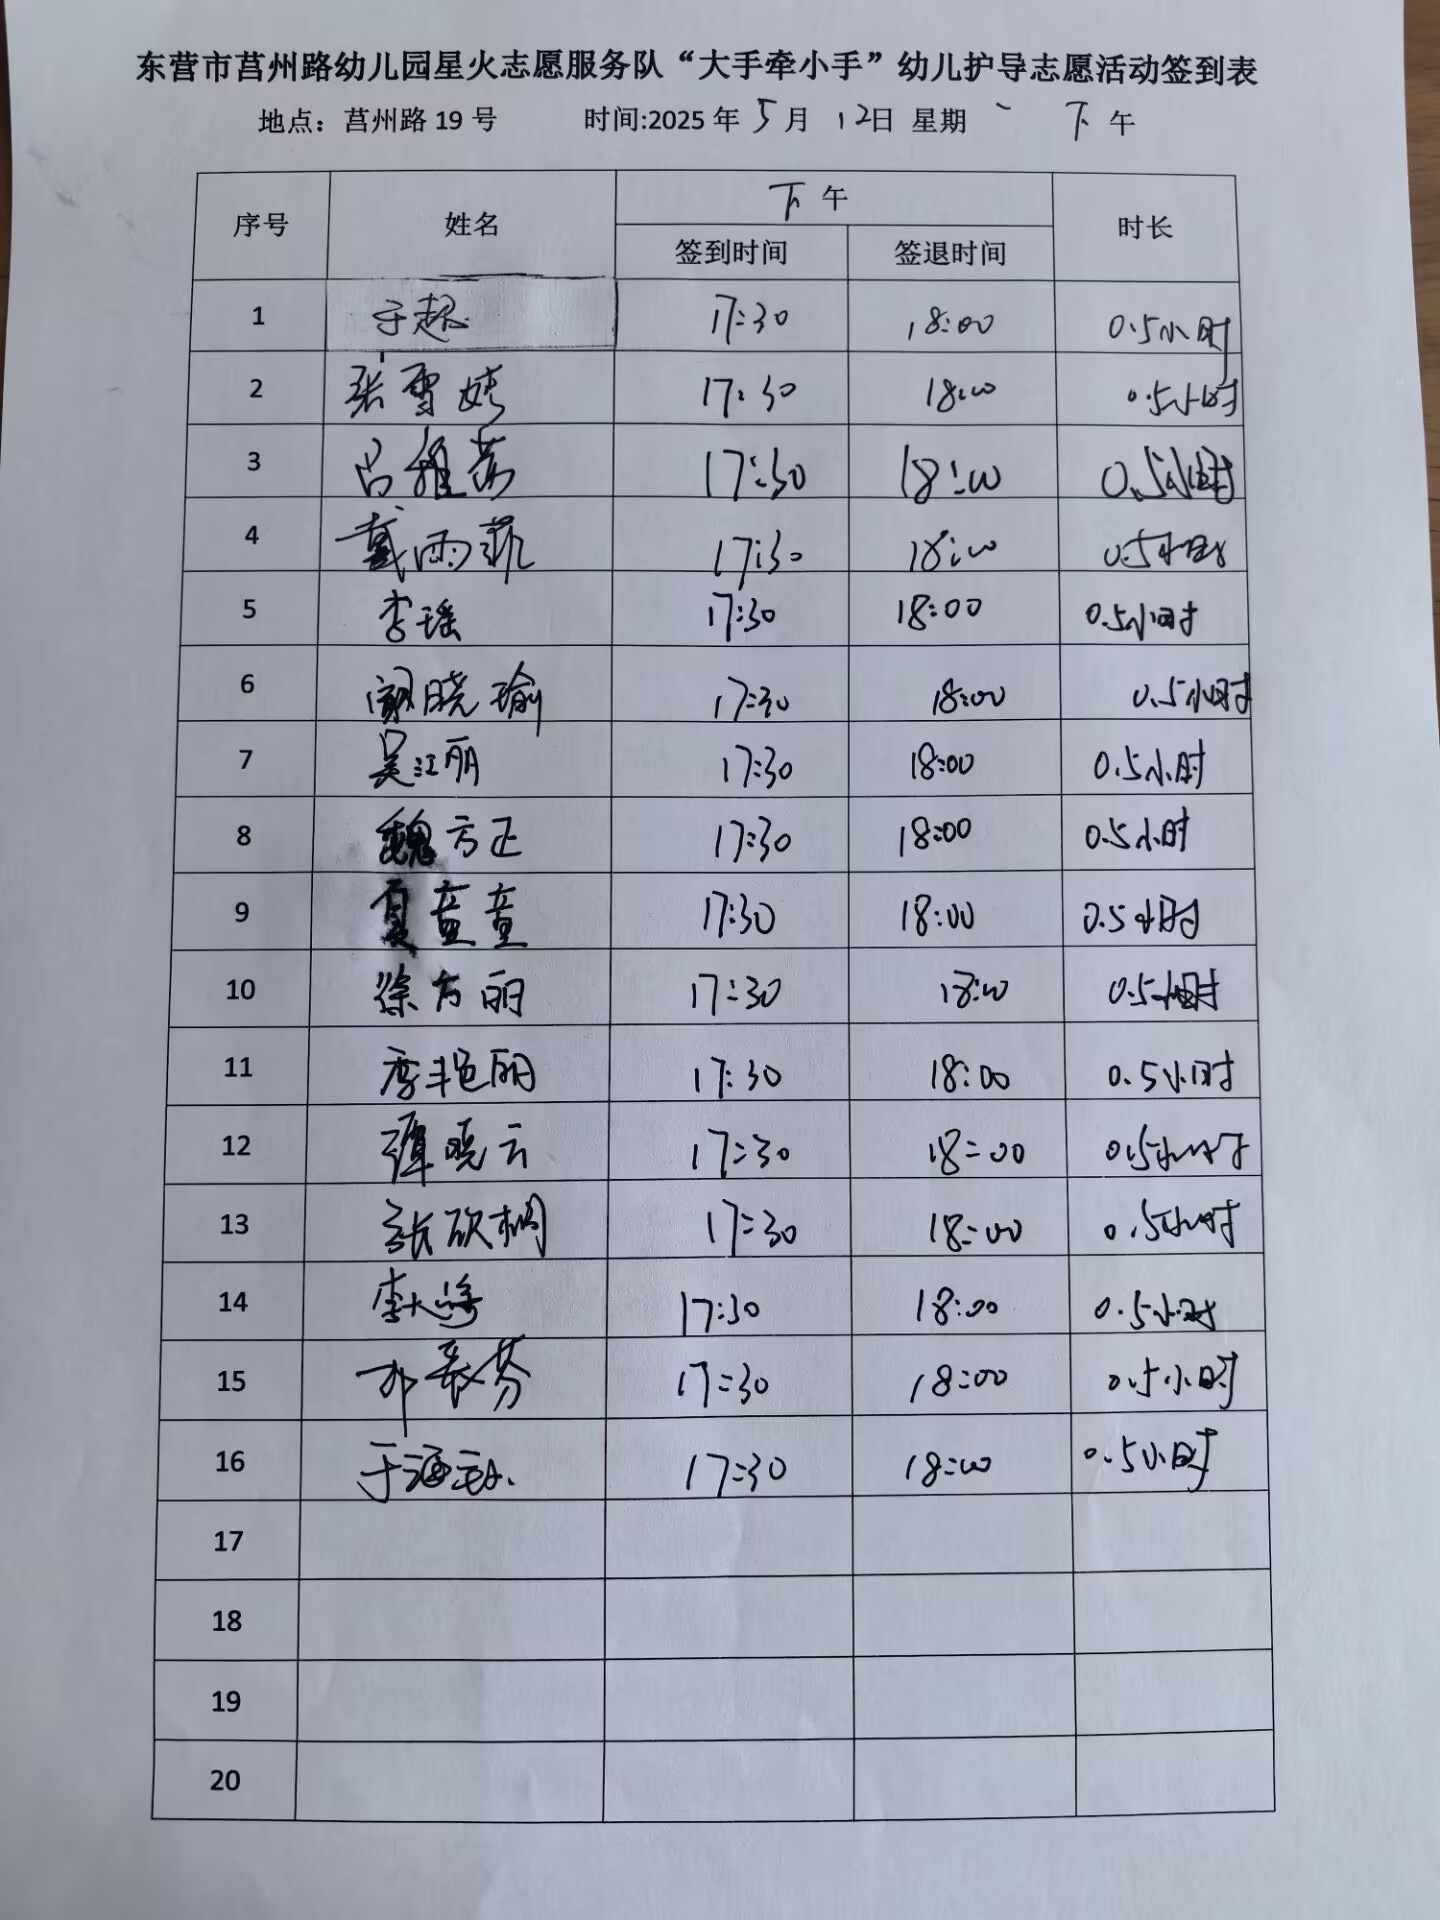 东营市莒州路幼儿园星火志愿服务队“大手牵小手”幼儿护导志愿活动签到表
地点：莒州路 19 号 时间:2025 年 5 月 12日 星期 一 下 午
序号 姓名 下 午 时长
签到时间 签退时间
1 于超 17:30 18:00 0.5小时
2 张雪婷 17:30 18:00 0.5小时
3 吕雅茹 17:30 18:00 0.5小时
4 戴雨菲 17:30 18:00 0.5小时
5 李瑶 17:30 18:00 0.5小时
6 阚晓瑜 17:30 18:00 0.5小时
7 吴江丽 17:30 18:00 0.5小时
8 魏方正 17:30 18:00 0.5小时
9 夏童童 17:30 18:00 0.5小时
10 徐方丽 17:30 18:00 0.5小时
11 李艳丽 17:30 18:00 0.5小时
12 谭晓云 17:30 18:00 0.5小时
13 张欣桐 17:30 18:00 0.5小时
14 17:30 18:00 0.5小时
15 17:30 18:00 0.5小时
16 17:30 18:00 0.5小时
17
18
19
20